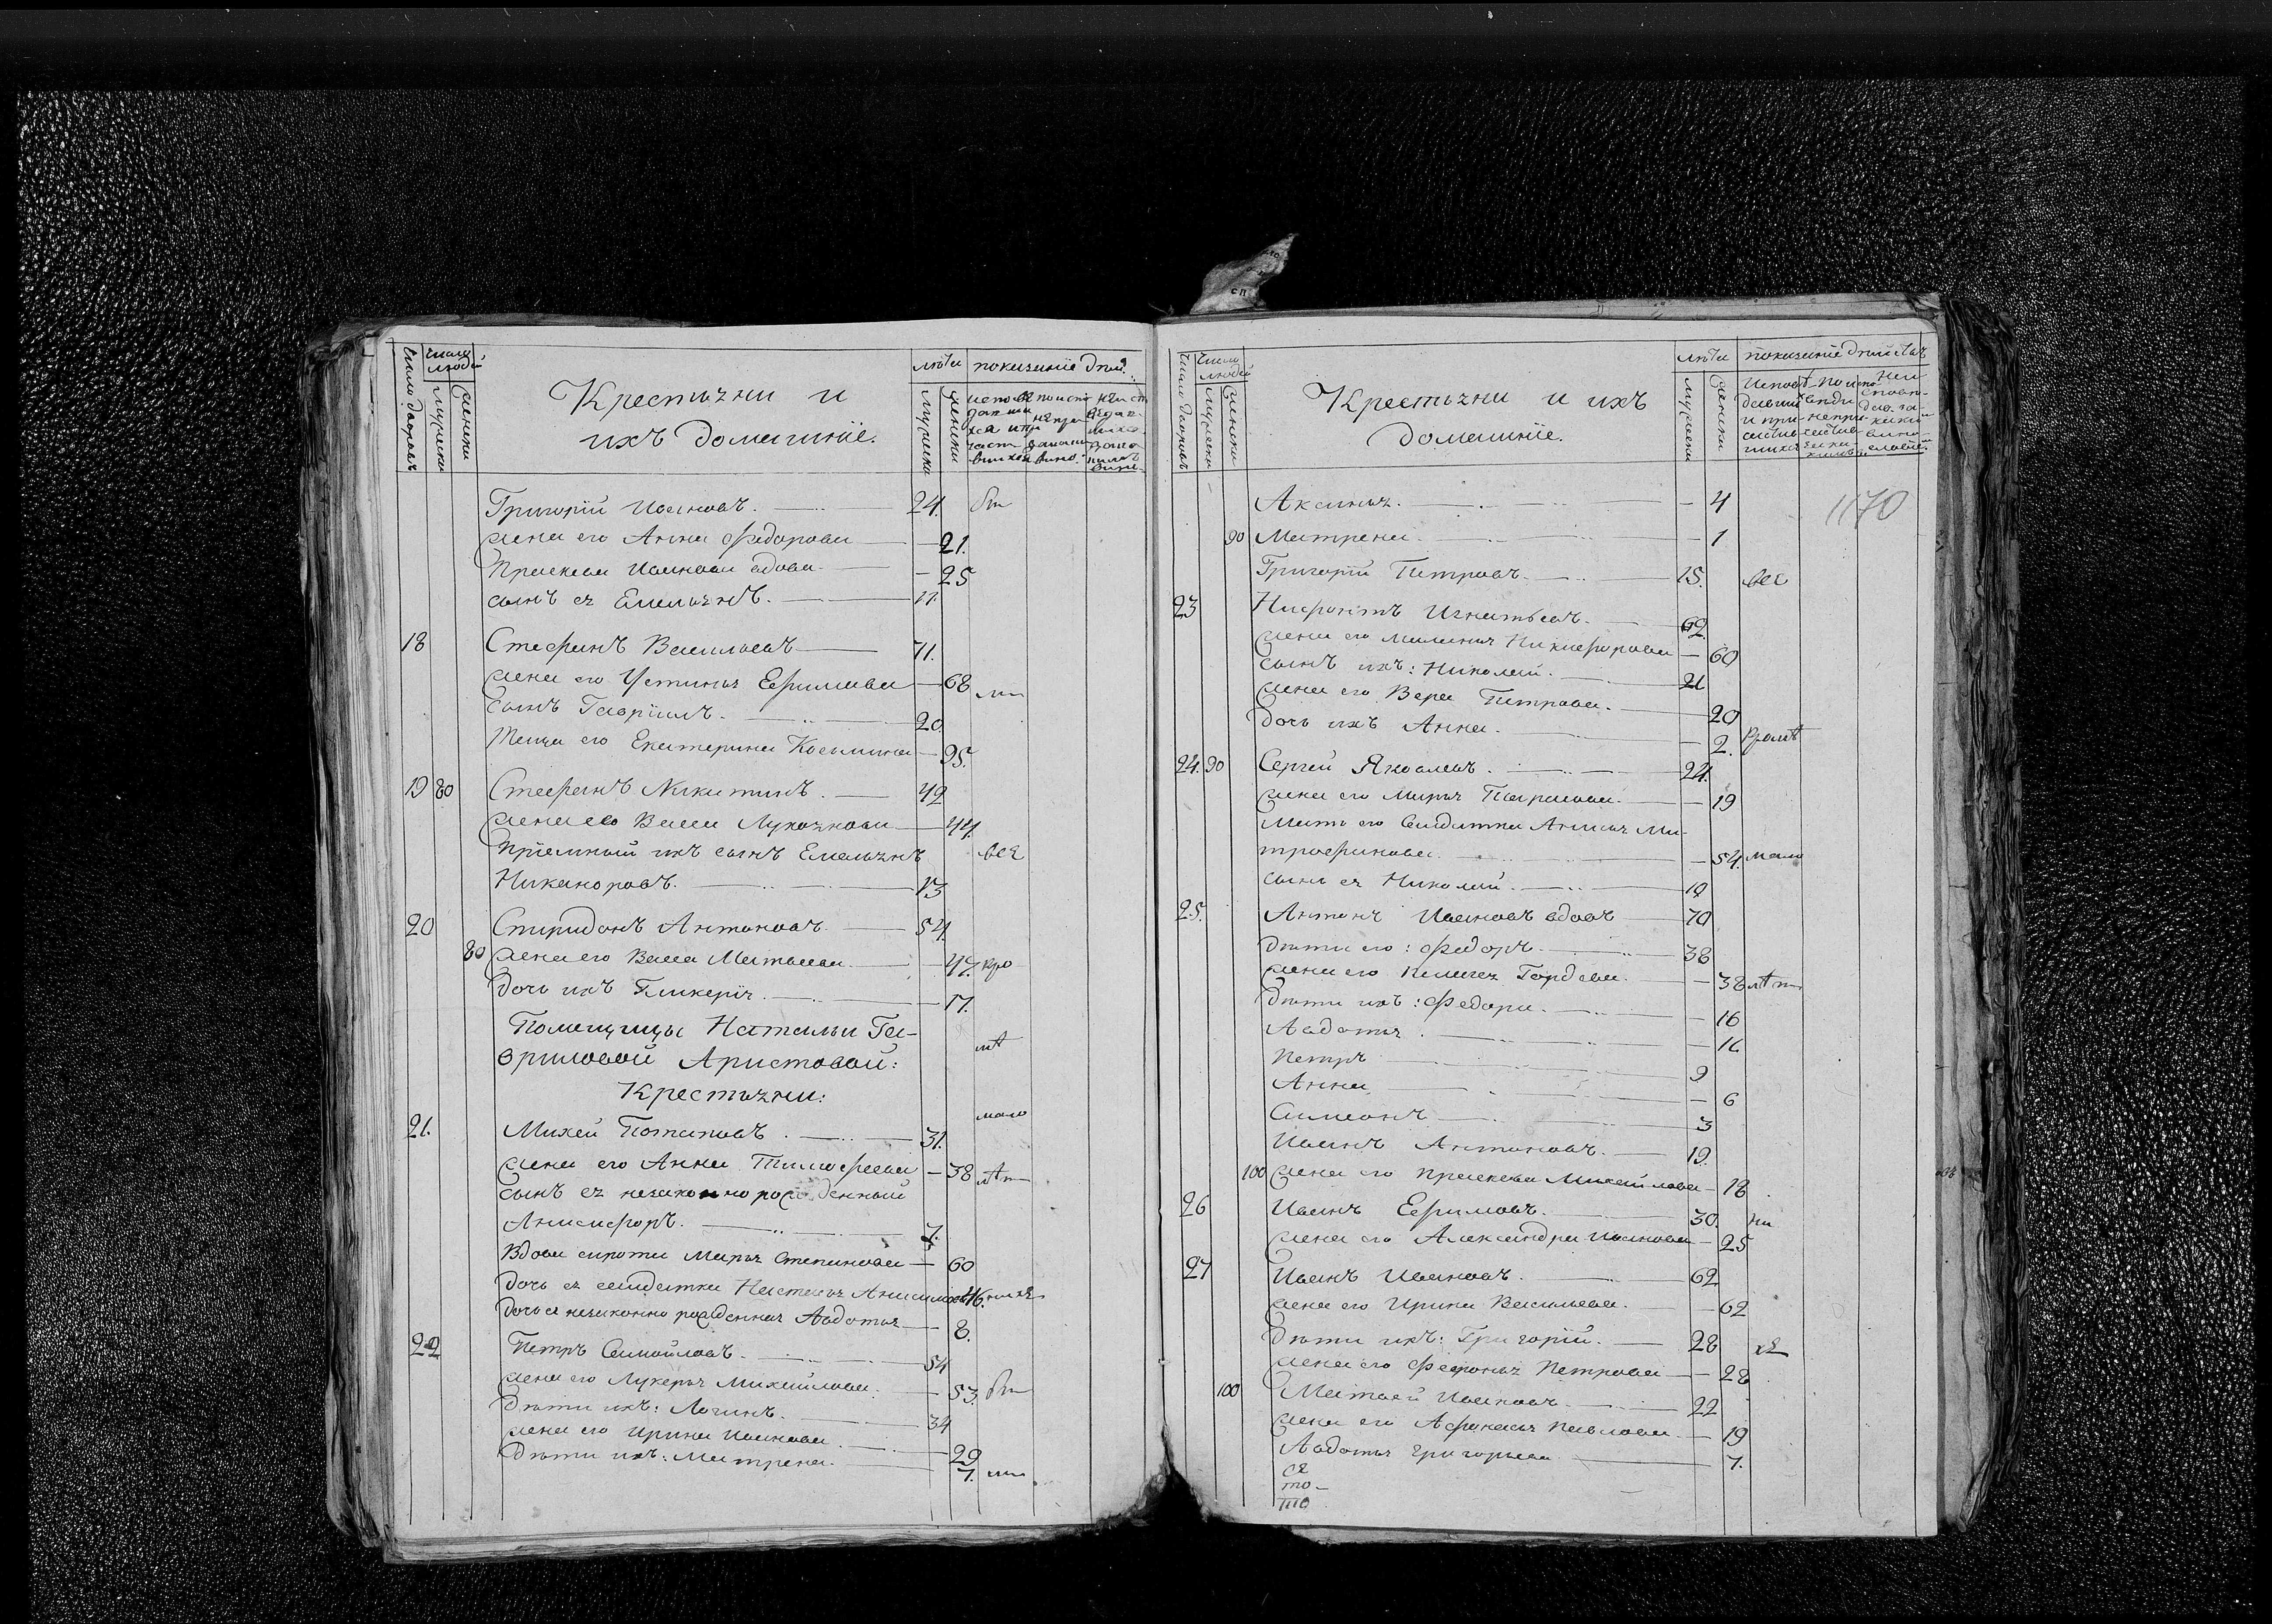 число дворовъ
число людей
мужески
женски
Крестьяни и
ихъ домашніе.
лѣта
мужеска
женски
показаніе дѣй.
Григорій Ивановъ. 24.
жена его Анна Федорова 21.
Прасковья Иванова вдова 25
сынъ ея Емельянъ. 11.
18 Стефанъ Васильевъ 71.
жена его Устинья Ефимова 68
сынъ Гавріилъ. 20.
Теща его Екатерина Косьмина 95.
19 80 Стефанъ Никитинъ. 42
жена его Васса Лукоянова 44.
Пріемный ихъ сынъ Емельянъ все
Никаноровъ. 13
20 Спиридонъ Антоновъ. 54.
80 жена его Васса Матвеева 47. кро
дочь ихъ Гликерія. 17.
Помещицы Натальи Га-
вриловой Аристовой: лѣ
Крестьяни:
мало
21. Михей Потаповъ. 31.
жена его Анна Тимофеева 38 лѣт
сынъ ея незаконно рожденный
Анисифоръ. 7.
Вдова сирота Марья Степанова 60
дочь ея салдатка Настасья Анисимова 46.
дочь ея незаконно рожденная Авдотья 8.
22 Петръ Самойловъ. 54
жена его Лукерья Михайлова. 53.
Дѣти ихъ: Логинъ. 34
жена его Ирина Иванова 29
Дѣти ихъ: Матрена. 7.
число дворовъ
число людей
мужески
женски
Крестьяни и ихъ
домашніе.
лѣта
мужески
женски
показаніе дѣйствъ
Аксинья. 4
1170
90 Матрена. 1
Григорій Петровъ. 15. все
23 Нифонтъ Игнатьевъ. 62.
жена его Маланья Никифорова 60
сынъ ихъ: Николай. 21
жена его Вера Петрова. 20
дочь ихъ Анна. 2. кромѣ
24. 90 Сергей Яковлевъ. 24.
жена его Марья Тарасова. 19
Мать его Салдатка Анисья Ми-
трофанова. 54. мало
сынъ ея Николай. 19
25. Антонъ Ивановъ вдовъ 70
Дѣти его: Федоръ. 38
жена его Пелагея Гордева. 38 лѣт
Дѣти ихъ: Федора. 16
Авдотья. 11
Петръ 9
Анна 6
Симеонъ 3
Иванъ Антоновъ. 19.
100 жена его Прасковья Михайлова 18
26 Иванъ Ефимовъ. 30. ни
жена его Александра Иванова 25
27 Иванъ Ивановъ. 62
жена его Ирина Васильева. 62
Дѣти ихъ: Григорій. 28
жена его Федосья Петрова 28
100 Матвей Ивановъ. 22
жена его Афанасья Павлова. 19
Авдотья Григорьева 7.
ся
то-